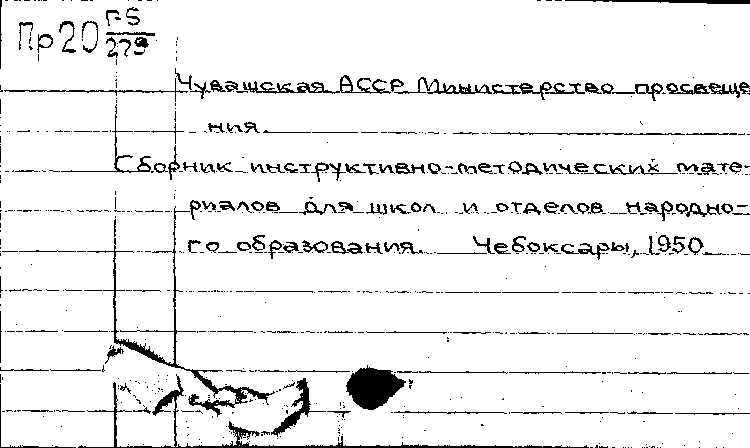 Пр20 Г-5/279
Чувашская АССР Министерство просвеще
ния.
Сборник инструктивно-методических мате-
риалов для школ и отделов народно-
го образования. Чебоксары, 1950.